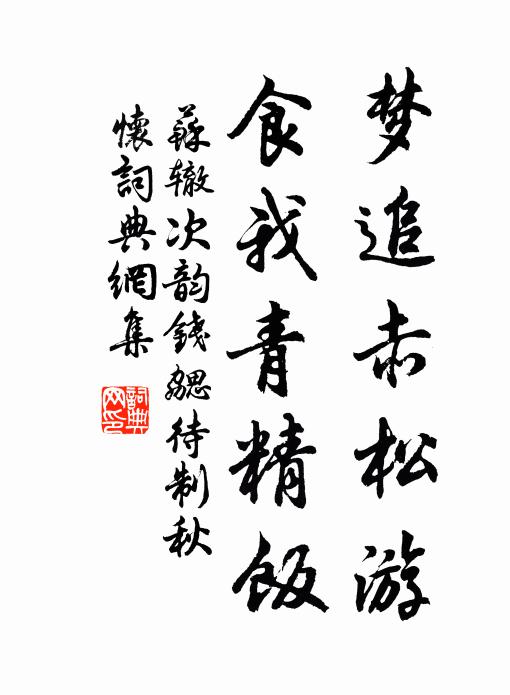 梦追赤松游
食我青精饭
蘇辙次韵錢勰待制秋
懷詞典網集
詞典
网印